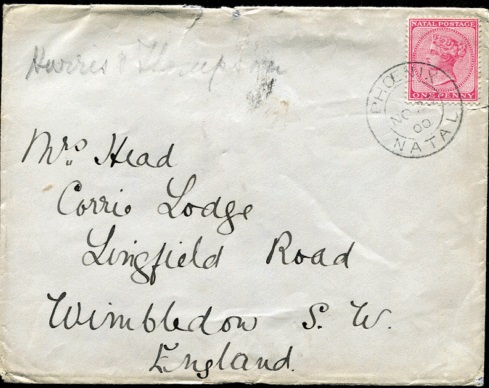 NATAL POSTAGE
ONE PENNY
PHOENIX
NO
00
NATAL
Mrs Head
Corrie Lodge
Lingfield Road
Wimbledon S. W.
England.